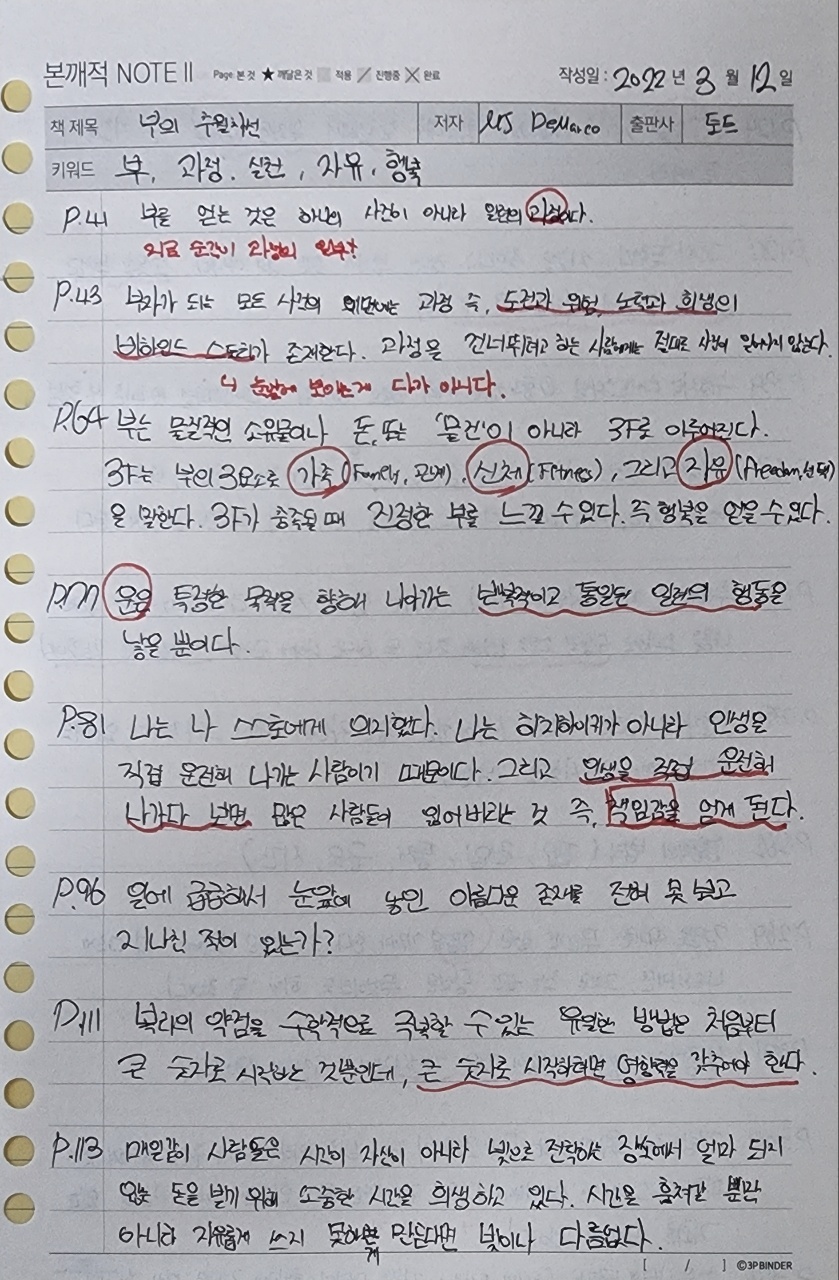 본깨적 NOTE II Page 본 것 ★ 깨달은 것 적용 진행중 완료 작성일 : 2022 년 3 월 12 일
책 제목 부의 추월차선 저자 MJ DeMarco 출판사 토트
키워드 부, 과정, 실천, 자유, 행복
P.41 부를 얻는 것은 하나의 사건이 아니라 일련의 과정이다.
지금 순간이 과정의 일부!
P.43 부자가 되는 모든 사건의 이면에는 과정 즉, 도전과 위험, 노력과 희생이
비하인드 스토리가 존재한다. 과정을 건너뛰려고 하는 사람에게는 절대로 사건이 일어나지 않는다.
↳ 눈앞에 보이는게 다가 아니다.
P.64 부는 물질적인 소유물이나 돈, 또는 '물건'이 아니라 3F로 이루어진다.
3F는 부의 3요소로 가족(Family, 관계), 신체(Fitness), 그리고 자유(Freedom, 선택)
을 말한다. 3F가 충족될 때 진정한 부를 느낄 수 있다. 즉 행복을 얻을 수 있다.
P.77 운은 특정한 목적을 향해 나아가는 반복적이고 통일된 일련의 행동을
낳을 뿐이다.
P.81 나는 나 스스로에게 의지했다. 나는 히치하이커가 아니라 인생을
직접 운전해 나가는 사람이기 때문이다. 그리고 인생을 직접 운전해
나가다 보면 많은 사람들이 잃어버리는 것 즉, 책임감을 얻게 된다.
P.96 일에 급급해서 눈앞에 놓인 아름다운 존재를 전혀 못 보고
지나친 적이 있는가?
P.111 복리의 약점을 수학적으로 극복할 수 있는 유일한 방법은 처음부터
큰 숫자로 시작하는 것뿐인데, 큰 숫자로 시작하려면 영향력을 갖추어야 한다.
P.113 매일같이 사람들은 시간이 자산이 아니라 빚으로 전락하는 장소에서 얼마 되지
않는 돈을 벌기 위해 소중한 시간을 희생하고 있다. 시간을 훔쳐갈 뿐만
아니라 자유롭게 쓰지 못하게 만든다면 빚이나 다름없다.
[ / ] ©3P BINDER